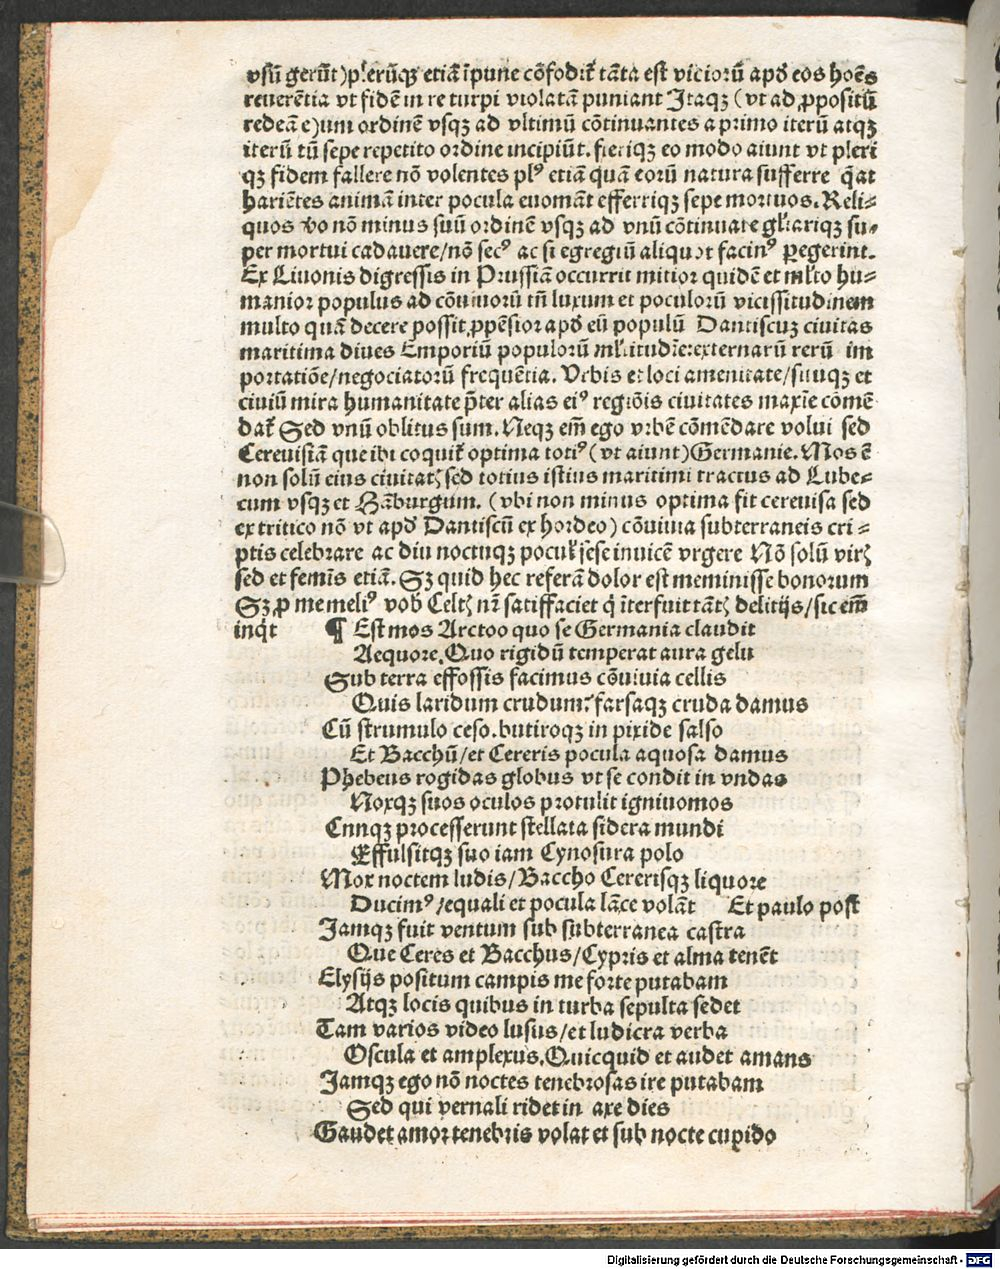 vsū gerūt)plerūqꝫ etiā īpune cōfodit᷑ tāta est vicioꝝ apd eos hoēs
reuerētia vt fidē in re turpi violatā puniant Jtaqꝫ (vt ad ꝓpositū
redeā e)um ordinē vsqꝫ ad vltimū cōtinuantes a primo iterū atqꝫ
iterū tū sepe repetito ordine incipiūt. fietiqꝫ eo modo aiunt vt pleri
qꝫ fidem fallere nō volentes plꝰ etiā quā eorū natura sufferre q̄at
hariētes animā inter pocula euomāt efferriqꝫ sepe mortuos. Reli⸗
quos vo nō minus suū ordinē vsqꝫ ad vnū cōtinuare gl̄iariqꝫ su⸗
per mortui cadauere/nō secꝰ ac si egregiū aliquot facinꝰ ꝑegerint.
Ex Liuonis digressis in Prussiā occurrit mitior quidē et ml̄to hu⸗
manior populus ad cōuiuiorū tn̄ luxum et poculorū vicissitudinem
multo quā decere possit ꝓpēsior apd eū populū Dantiscuꝫ ciuitas
maritima diues Emporiū populorū ml̄titudīe:externarū rerū im
portatiōe/negociatorū frequētia. Vrbis et loci amenitate/situqꝫ et
ciuiū mira humanitate p̄ter alias eiꝰ regiōis ciuitates maxīe cōmē
dat᷑ Sed vnū oblitus sum. Neqꝫ em̄ ego vrbē cōmēdare volui sed
Cereuisiam que ibi coquit᷑ optima totiꝰ (vt aiunt)Germanie. Mos ē
non solū eius ciuitatꝭ sed totius istius maritimi tractus ad Lube⸗
cum vsqꝫ et Hāburgum. (vbi non minus optima fit cereuisa sed
ex tritico nō vt apd Dantiscū ex hordeo) cōuiuia subterraneis cri⸗
ptis celebrare ac diu noctuqꝫ pocul᷑ sese inuicē vrgere Nō solū virꝭ
sed et femīs etiā. Sꝫ quid hec referā dolor est meminisse bonorum
Sꝫ ꝓ me meliꝰ vob Celtꝭ nr̄ satiffaciet q̇ īterfuit tātꝭ delitijs/sic em̄
inq̇t ¶ Est mos Arctoo quo se Germania claudit
Aequore. Quo rigidū temperat aura gelu
Sub terra effossis facimus cōuiuia cellis
Quis laridum crudum: farsaqꝫ cruda damus
Cū strumulo ceso. butiroqꝫ in pixide salso
Et Bacchū/et Cereris pocula aquosa damus
Phebeus rogidas globus vt se condit in vndas
Noxqꝫ suos oculos protulit igniuomos
Cnnqꝫ processerunt stellata sidera mundi
Effulsitqꝫ suo iam Cynosura polo
Mox noctem ludis/Baccho Cererisqꝫ liquore
Ducimꝰ/equali et pocula lāce volāt Et paulo post
Jamqꝫ fuit ventum sub subterranea castra
Que Ceres et Bacchus/Cypris et alma tenēt
Elysijs positum campis me forte putabam
Atqꝫ locis quibus in turba sepulta sedet
Tam varios video lusus/et ludicra verba
Oscula et amplexus. Quicquid et audet amans
Jamqꝫ ego nō noctes tenebrosas ire putabam
Sed qui vernali ridet in axe dies
Gaudet amor tenebris volat et sub nocte cupido
Digitalisierung gefördert durch die Deutsche Forschungsgemeinschaft - DFG